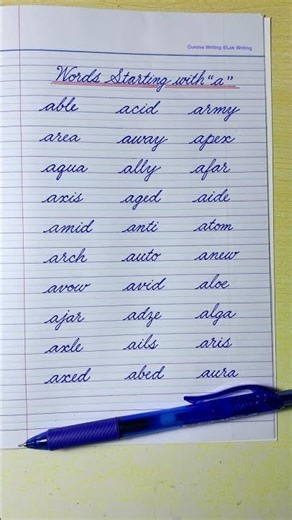 Cursive Writing @Lak Writing
Words Starting with "a"
able acid army
area away apex
aqua ally afar
axis aged aide
amid anti atom
arch auto anew
avow avid aloe
ajar adze alga
axle ails aris
axed abed aura